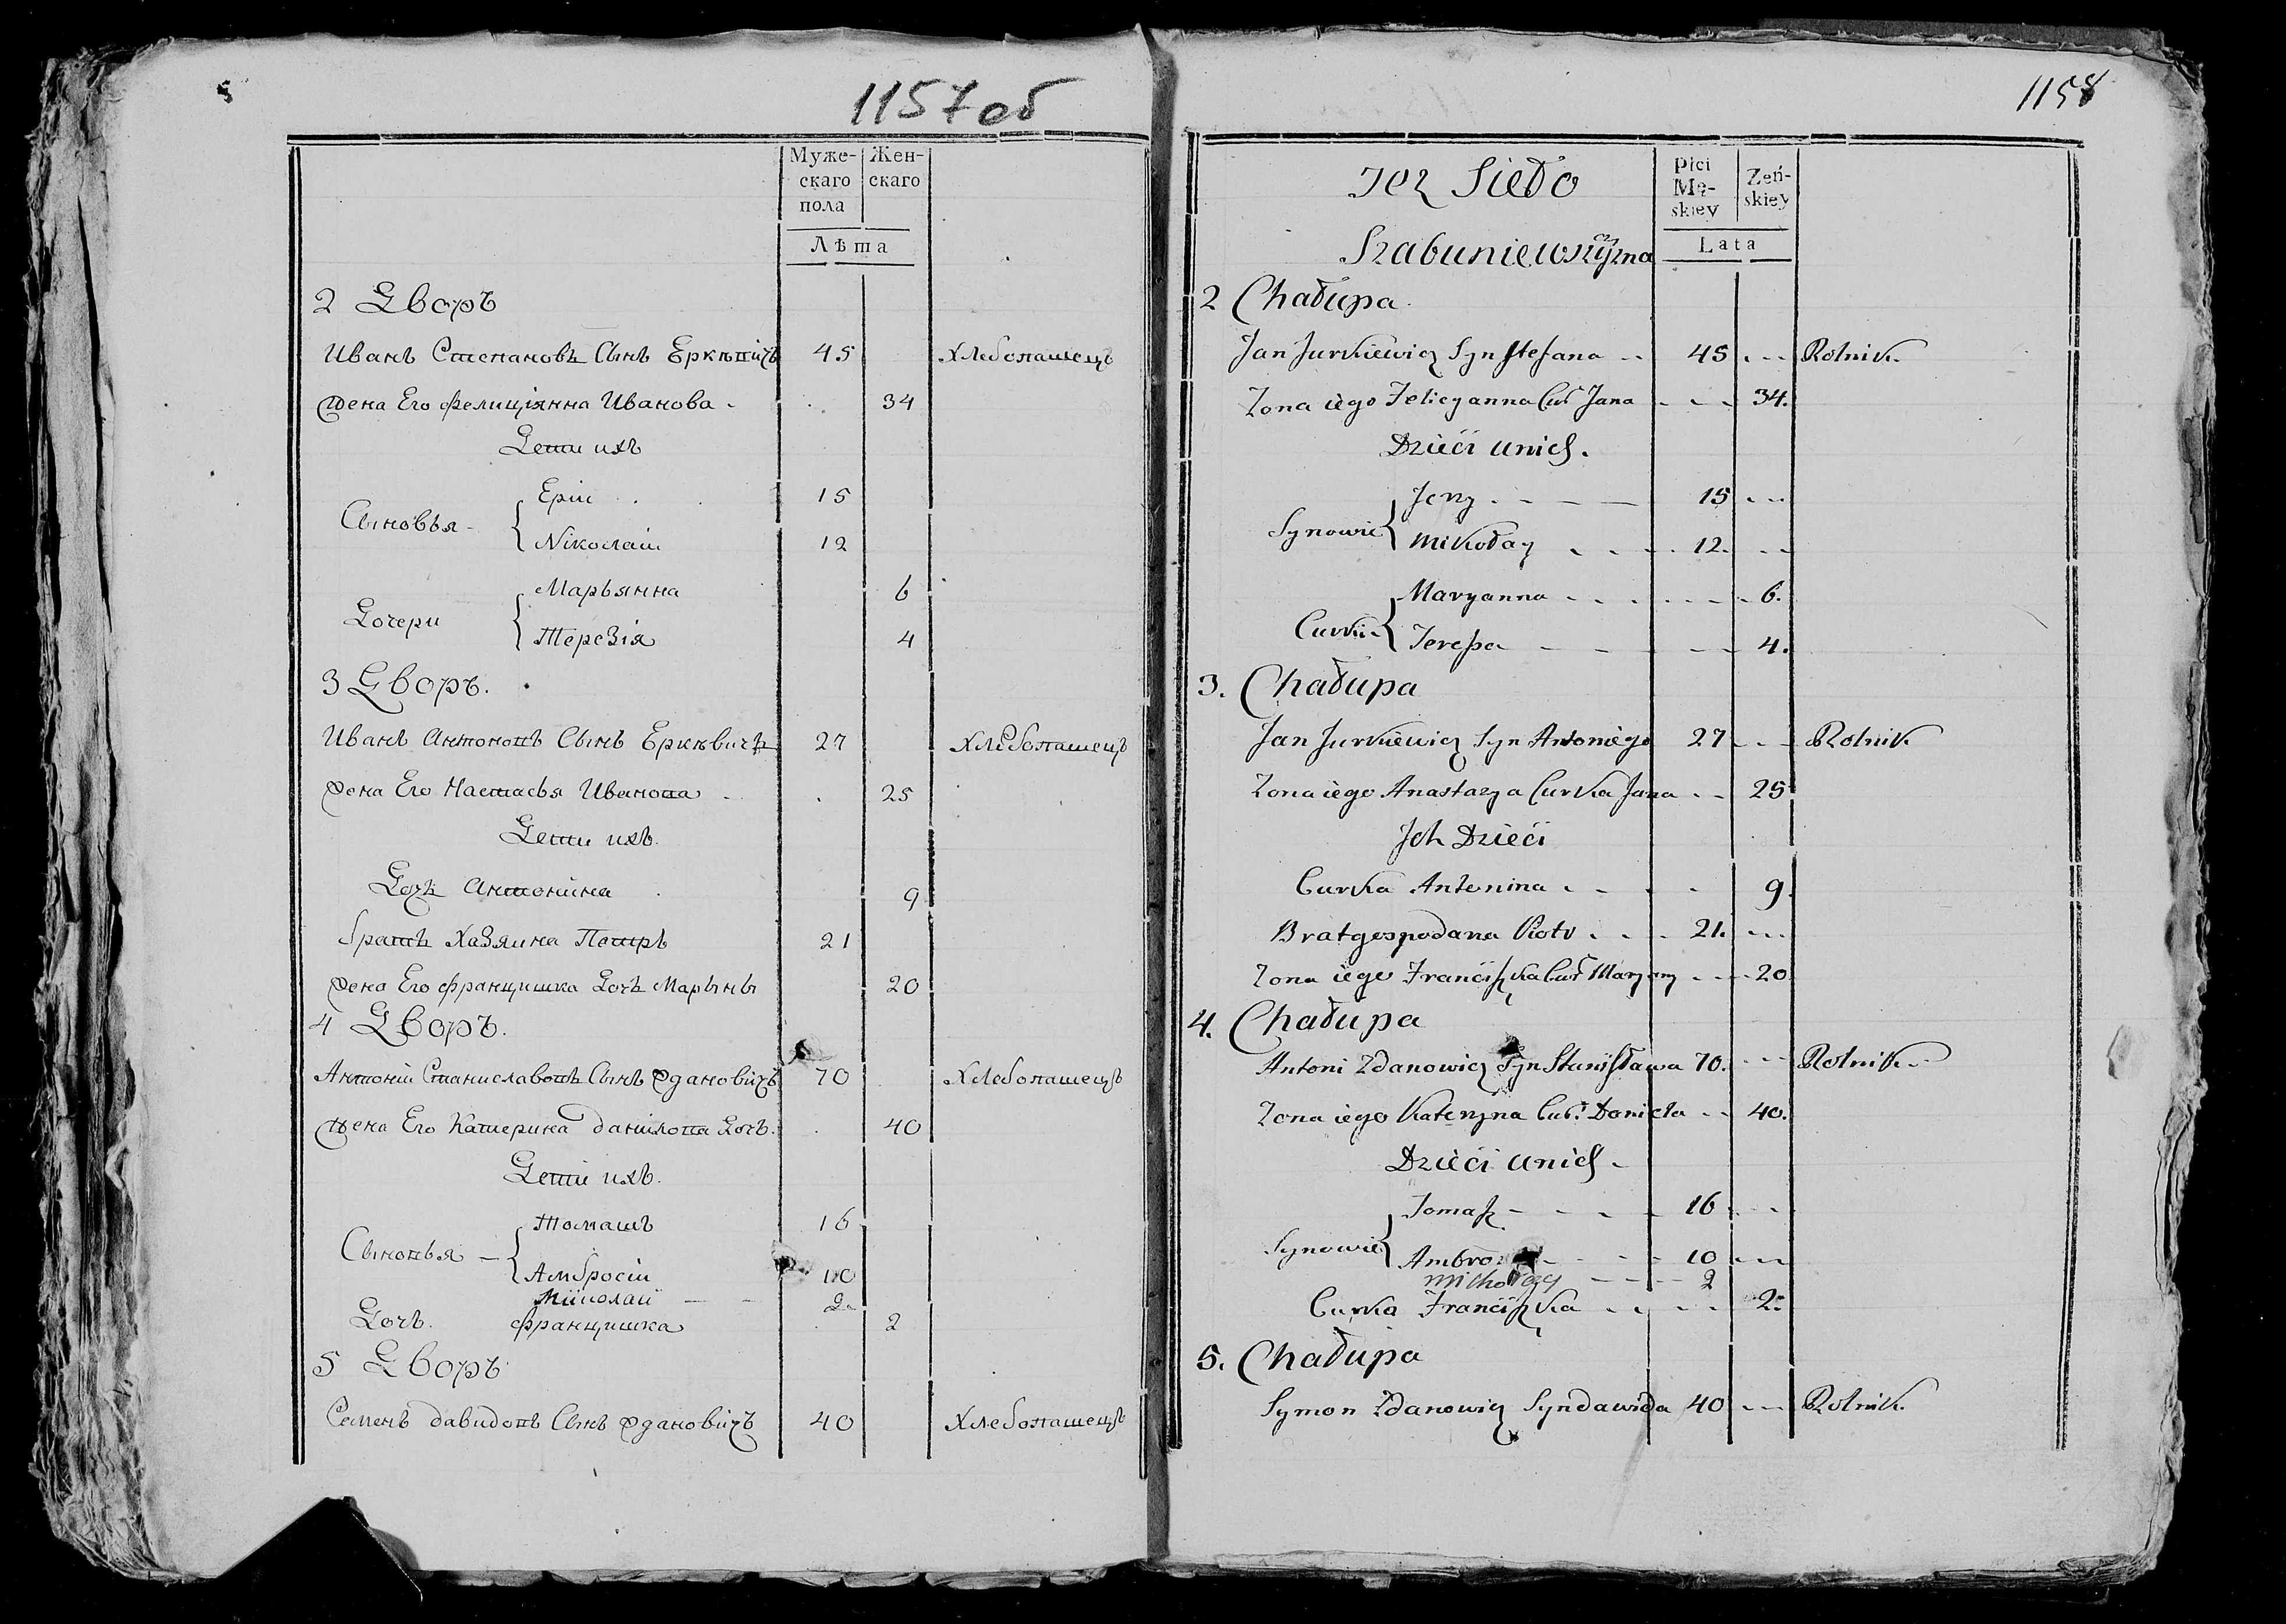 1157 об
Муже-
скаго
пола
Жен-
скаго
Лѣта
2 Дворъ
Иванъ Степановъ Сынъ Еркѣвичъ 45 Хлебопашецъ
Жена Его Фелиціянна Иванова - 34
Дети ихъ
Ерiи 15
Сыновья -
Nиколаи 12
Марьянна 6
Дочери
Терезiя 4
3 Дворъ.
Иванъ Антоновъ Сынъ Еркѣвичъ 27 Хлебопашецъ
Жена Его Настасья Иванова 25
Дети ихъ.
Дочь Антонина 9
братъ Хазяина Петръ 21
Жена Его Францишка Дочь Марыны 20
4 Дворъ.
Антонiи Станиславовъ Сынъ Ждановичъ 70 Хлебопашецъ
Жена Его Катерина данилова Дочь. 40
Дети ихъ.
Томашъ 16
Сыновья -
Амбросiи 10
Миколаи 2
Дочь. Францишка 2
5 Дворъ
Семенъ давидовъ Сынъ Ждановичъ 40 Хлебопашецъ
1158
Jez Sieło
Szabuniewszczyzna
Płci
Mę-
skiey
Żeń-
skiey
Lata
2 Chałupa.
Jan Jurkiewicz Syn Stefana 45 Rolnik
Zona iego Felicyanna Cur Jana 34.
Dzieci unich.
Jerzy 15
Synowie
Mikołay 12.
Maryanna 6.
Curki
Teressa 4.
3. Chałupa
Jan Jurkiewicz Syn Antoniego 27 Rolnik
Zona iego Anastazya Curka Jana 25
Jch Dzieci
Curka Antonina 9.
Brat gospodara Piotr 21.
Zona iego Franciszka Cur Maryny 20
4. Chałupa
Antoni Zdanowicz Syn Stanisława 70. Rolnik
Zona iego Katerzyna Cur. Daniela 40.
Dzieci unich
Tomasz 16
Synowie
Ambro 10
Mikołay 2
Curka Franciszka 2.
5. Chałupa
Symon Zdanowicz Syn dawida 40 Rolnik.